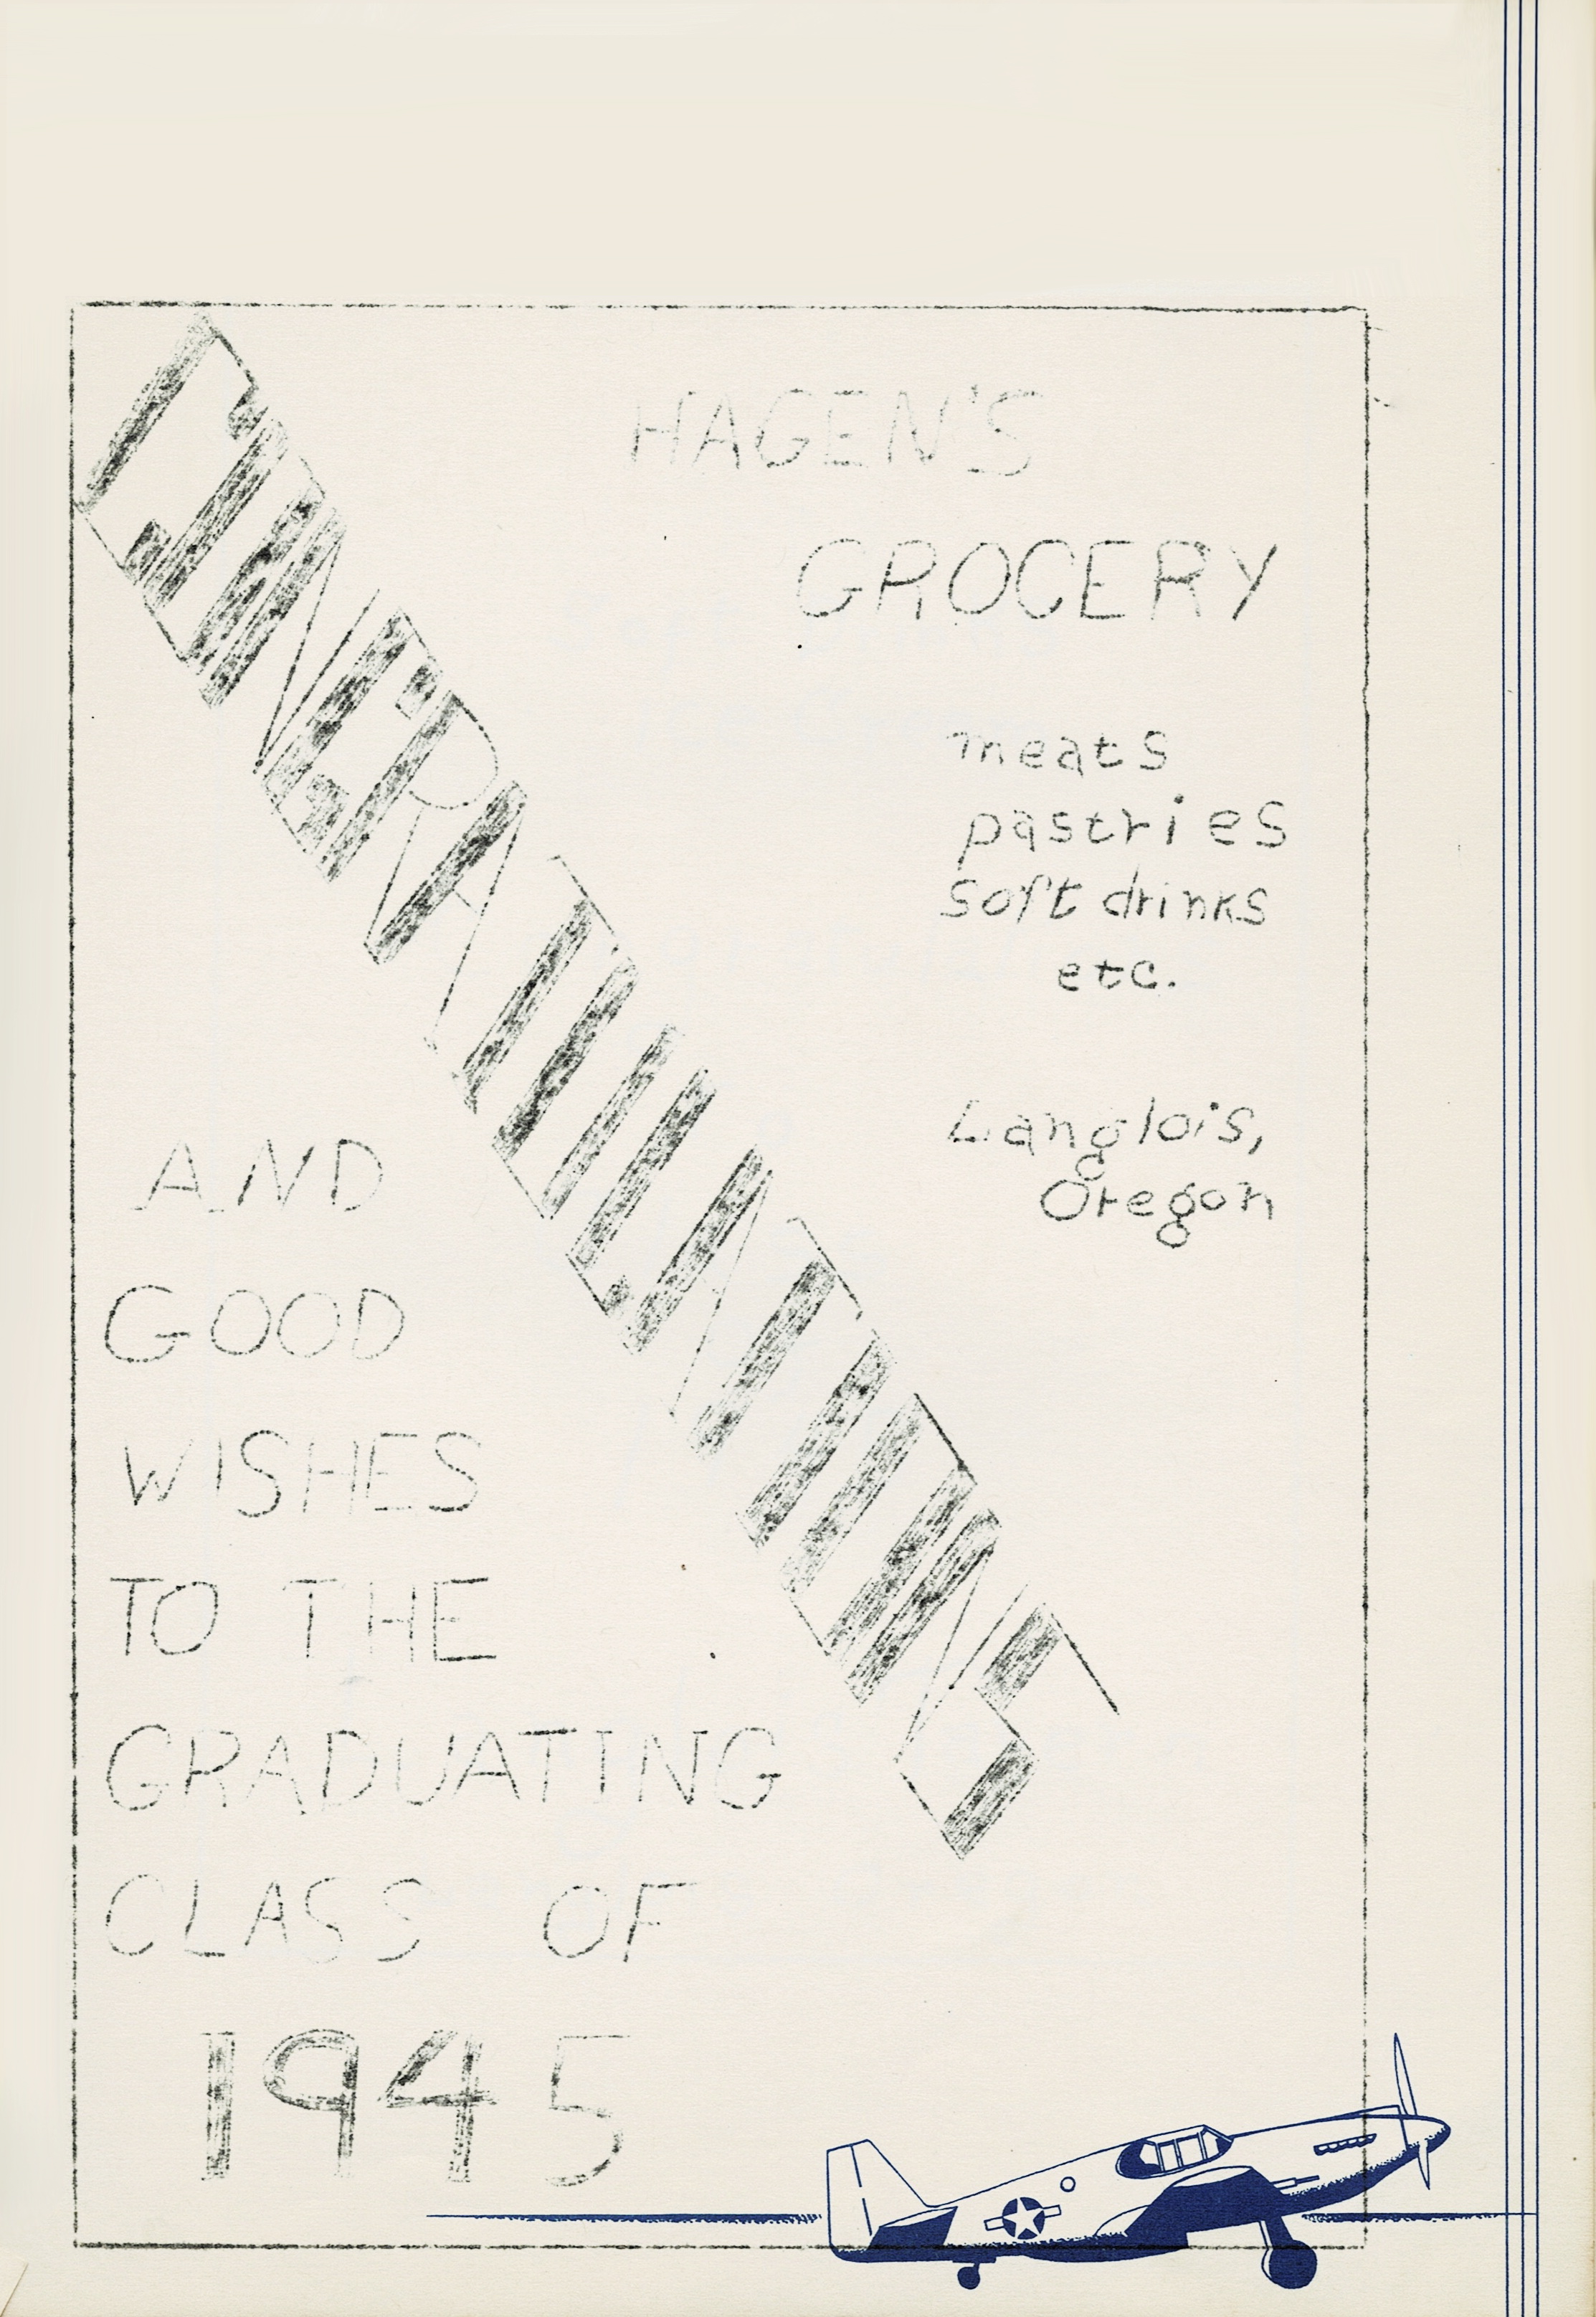 CONGRATULATIONS
HAGEN'S
GROCERY
meats
pastries
soft drinks
etc.
Langlois,
Oregon
AND
GOOD
WISHES
TO THE
GRADUATING
CLASS OF
1945